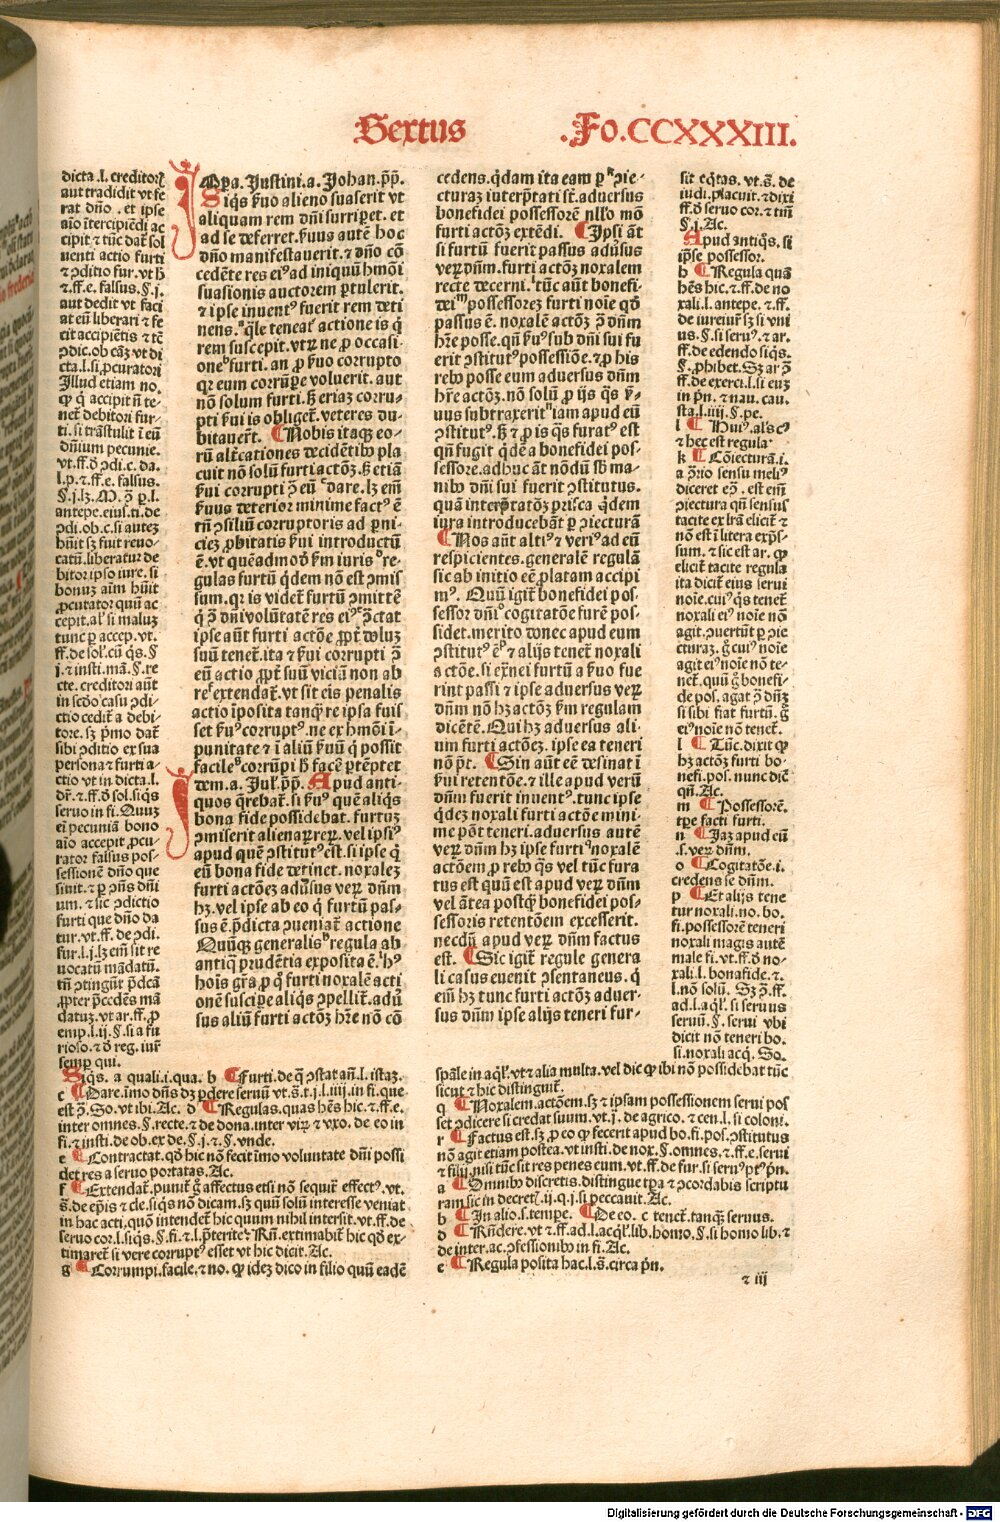 Sextus
.Fo.CCXXXIII.
dicta .l. creditor
aut tradidit vt fe
rat dño . et ipse
aĩo ĩtercipiẽdi ac
cipit ⁊ tũc dat̃ sol
uenti actio furti
⁊ ↄditio fur. vt
⁊.ff.e. falsus. §.j.
aut dedit vt faci
at eũ liberari ⁊ fe
cit accipiẽtis ⁊
cta.l.si.ꝓcuratori
Illud etiam no.
tenet̃ debitori fur-
ti. si trãstulit ĩ eũ
dñium pecunie.
l.p.⁊.ff.e. falsus.
antepe.eius.ti.de
catũ.liberatur de
bitor ipso iure. si
ꝓcutator quũ ac
cepit. si maluʒ
tunc ꝑ accep. vt.
j.⁊ insti. mã. §.re
cte. creditori aũt
in scđo casu ↄdi-
ctio cedit̃ a debi-
tore. sʒ pⁱmo dat̃
sibi ↄditio ex sua
persona ⁊ furti a-
ctio vt in dicta.l.
seruo in fi. Quuʒ
ei pecuniã bono
aĩo accepit ꝓcu-
rator falsus pos-
sessionẽ dño que
um. ⁊ sic ↄdictio
furti que dño da
tur. vt.ff. de ↄdi.
uocatũ mãdatũ.
ꝓpter p̃cedẽs mã
datuʒ. vt ar.ff. ꝓ
emp.l.ij.§.si a fu
rioso.⁊ đ reg. iur̃
semper qui.
Siqⁱs kuo alieno suaserit vt
aliquam rem dñi surripet. et
ad se deferret. kuus autẽ hoc
dño manifestauerit. ⁊ dño cõ
cedẽte res eiꝰ ad iniquũ hmõi
suasionis auctorem ꝑtulerit.
⁊ ipse inuentꝰ fuerit rem deti
nens. q̃le teneat̃ actione is q̃
rem suscepit. vtꝝ ne ꝓ occasi-
one furti. an ꝓ kuo corrupto
qꝛ eum corrũpe voluerit. aut
nõ solum furti. sʒ etiaʒ corru-
pti kui is obliget̃. veteres du-
bitauer̃t. Nobis itaqʒ eo-
rũ alt̃cationes decidẽtibꝰ pla
cuit nõ solũ furti actõʒ. sʒ etiã
kui corrupti ↄ̃ eũ dare. lʒ em̃
kuus deterior minime factꝰ ẽ
tñ ↄsiliũ corruptoris ad ꝑni-
cieʒ ꝓbitatis kui introductũ
gulas furtũ qⁱdem nõ est ↄmis
sum. qꝛ is videt̃ furtũ ↄmittẽ
ipse aũt furti actõe ꝓpt̃ doluʒ
suũ tenet̃. ita ⁊ kui corrupti ↄ̃
eũ actio ꝓpt̃ suũ viciũ non ab
re extendat̃. vt sit eis penalis
actio ĩposita tanqʒ re ipsa fuis
set kuꝰ corruptꝰ. ne ex hmõi ĩ-
punitate ⁊ ĩ aliũ kuũ qⁱ possit
dem. a. Juł. pp. Apud anti-
quos q̃rebat̃. si kuꝰ quẽ aliqⁱs
bona fide possidebat. furtuʒ
apud quẽ ↄstitutꝰ est. si ipse qⁱ
eũ bona fide detinet. noxaleʒ
furti actõeʒ aduersus veꝝ dñm
hʒ. vel ipse ab eo qⁱ furtũ pas-
sus ẽ. p̃dicta ↄueniat̃ actione
Quũqʒ generalis regula ab
antiqⁱ prudẽtia exposita ẽ. hꝰ
hoĩs gr̃a. ꝓ qⁱ furti noxalẽ acti
onẽ suscipe aliqⁱs ↄpellit̃. adũ
sus aliũ furti actõʒ hr̃e nõ cõ
cedens. qⁱdam ita eam ꝑ ↄie-
cturaʒ interp̃tati st̃. aduersus
bonefidei possessorẽ nllo mõ
furti actõʒ extẽdi. Ipsi ãt
si furtũ fuerit passus adũsus
veꝝ dñm. furti actõʒ noxalem
recte decerni. tũc aũt bonefi-
dei possessoreʒ furti noĩe qđ
passus ẽ. noxalẽ actõʒ ↄ̃ dñm
hr̃e posse. qñ kuꝰ sub dñi sui fu
erit ↄstitutꝰ possessiõe. ⁊ ꝓ his
rebꝰ posse eum aduersus dñm
hr̃e actõʒ. nõ solũ ꝓ ijs qⁱs k-
uus subtraxerit iam apud eũ
ↄstitutꝰ. sʒ ⁊ ꝓ is qⁱs furatꝰ est
qñ fugit qⁱdẽ a bonefidei pos-
sessore. adhuc ãt nõdũ sb ma-
nibꝰ dñi sui fuerit ↄstitutus.
quã interp̃tatõʒ prisca qⁱdem
iura introducebãt ꝑ ↄiecturã
Nos aũt altiꝰ ⁊ veriꝰ ad eũ
respicientes. generalẽ regulã
sic ab initio eẽ ꝓlatam accipi
mꝰ. Quũ igit̃ bonefidei pos-
sessor dñi cogitatõe furẽ pos-
sidet. merito donec apud eum
ↄstitutꝰ ẽ ⁊ alijs tenet̃ noxali
actõe. si ext̃nei furtũ a kuo fue
rint passi ⁊ ipse aduersus veꝝ
dñm nõ hʒ actõʒ km regulam
dicẽtẽ. Qui hʒ aduersus ali-
um furti actõeʒ. ipse ea teneri
nõ põt. Sin aũt eẽ desinat ĩ
kui retentõe. ⁊ ille apud verũ
dñm fuerit inuentꝰ. tunc ipse
qⁱdeʒ noxali furti actõe mini-
me põt teneri. aduersus autẽ
veꝝ dñm hʒ ipse furti noxalẽ
actõem ꝓ rebꝰ qⁱs vel tũc fura
tus est quũ est apud veꝝ dñm
vel ãtea postqʒ bonefidei pos-
sessoris retentõem excesserit.
necdũ apud veꝝ dñm factus
est. Sic igit̃ regule genera
li casus euenit ↄsentaneus. qⁱ
em̃ hʒ tunc furti actõʒ aduer-
sus dñm ipse alijs teneri fur-
sit eq̃tas. vt. s̃. de
iudi. placuit. ⁊ dixi
ff. đ seruo cor. ⁊ tiñ
§.j. Ac.
Apud antiqⁱs. si
ip̃se possessor.
h Regula quã
hẽs hic. ⁊.ff. de no
xali.l. antepe. ⁊.ff.
de iureiur̃ sʒ si vni
us. §. si seruꝰ. ⁊ ar.
ff. de edendo siqⁱs.
§. ꝓhibet. Sʒ ar ↄ̃
ff. de exerci.l. si euʒ
in pⁿ. ⁊ nau. cau.
sta.l.iiij.§.pe.
⁊ hec est regula
k Cõiecturã. i.
a ↄ̃rio sensu meliꝰ
diceret eꝑ̃. est em̃
ↄiectura qñ sensus
tacite ex lr̃a elicit̃ ⁊
nõ est ĩ litera exp̃s-
sum. ⁊ sic est ar. qꝫ
elicit̃ tacite regula
ita dicit̃ eius serui
noĩe. cuiꝰ qⁱs tenet̃
noxali eiꝰ noĩe nõ
agit. ↄuertũt ꝑ ↄie
cturaʒ. g̃ cuiꝰ noĩe
agit eiꝰ noĩe nõ te-
net̃. quũ g̃ bonefi-
de pos. agat ↄ̃ dñʒ
si sibi fiat furtũ. g̃
eiꝰ noĩe nõ tenet̃.
l Tũc. dixit qꝫ
hʒ actõʒ furti bo-
nefi. pos. nunc dic̃
qñ. Ac.
m Possessorẽ.
tp̃e facti furti.
n Iaʒ apud eũ
.s. veꝝ dñm.
o Cogitatõe. i.
credens se dñm.
p Et alijs tene
tur noxali. no. bo.
fi. possessorẽ teneri
noxali magis autẽ
male fi. vt.ff. đ no-
xali.l. bona fide. ⁊.
l. nõ solũ. Sʒ ↄ̃.ff.
ad.l.aq̃ł. si seruus
seruũ. §. serui vbi
dicit nõ teneri bo.
si. noxali acq̃. So.
Siqⁱs. a quali. i. qua. b Furti. de q̃ ↄstat añ.l. istaʒ.
c Dare. ĩmo dñs dʒ ꝑdere seruũ vt.s̃.t.j.l.iiij.in fi. que
est ↄ̃. So. vt ibi. Ac. d Regulas. quas hẽs hic. ⁊.ff.e.
inter omnes. §. recte. ⁊ de dona. inter viꝝ ⁊ vxo. de eo in
fi. ⁊ insti. de ob. ex de. §.j. ⁊.§. vnde.
e Contractat. qđ hic nõ fecit ĩmo voluntate dñi possi
det res a seruo portatas. Ac.
f Extendat̃. punit̃ g̃ affectus etsi nõ sequit̃ effectꝰ. vt.
s̃. de ep̃is ⁊ cle. siqⁱs nõ dicam. sʒ quũ solũ interesse veniat
in hac acti. quõ intendet̃ hic quum nihil intersit. vt.ff. de
seruo cor.l.siqⁱs.§.fi.⁊.l. p̃terite Rñ. extimabit̃ hic qđ ex-
timaret̃ si vere corruptꝰ esset vt hic dicit. Ac.
g Corrumpi. facile. ⁊ no. qꝫ ideʒ dico in filio quũ eadẽ
sp̃ale in aq̃ł. vt ⁊ alia multa. vel dic qꝫ ibi nõ possidebat tũc
sicut ⁊ hic distinguit̃.
q Noxalem. actõem. sʒ ⁊ ipsam possessionem serui pos
set ↄdicere si credat suum. vt. j̃. de agrico. ⁊ cen.l. si coloni.
r Factus est. sʒ ꝓ eo qꝫ fecerit apud bo. fi. pos. ↄstitutus
nõ agit etiam postea. vt insti. de nox. §. omnes. ⁊.ff. e. serui
⁊ filij. nisi tũc sit res penes eum. vt.ff. de fur. si seruꝰ ptꝰ pⁿ.
a Omnibꝰ discretis. distingue tp̃a ⁊ ↄcordabis scriptu
ram sic in decret̃.ij.q.j. si peccauit. Ac.
b In alio. s. tempe. De eo. c tenet̃. tanqʒ seruus.
d Rñdere. vt ⁊.ff. ad.l. acqł. lib. homo. §. si homo lib. ⁊
de inter. ac. ↄfessionibꝰ in fi. Ac.
e Regula posita hac.l.s̃. circa pⁿ.
⁊ iij
Digitalisierung gefördert durch die Deutsche Forschungsgemeinschaft - DFG